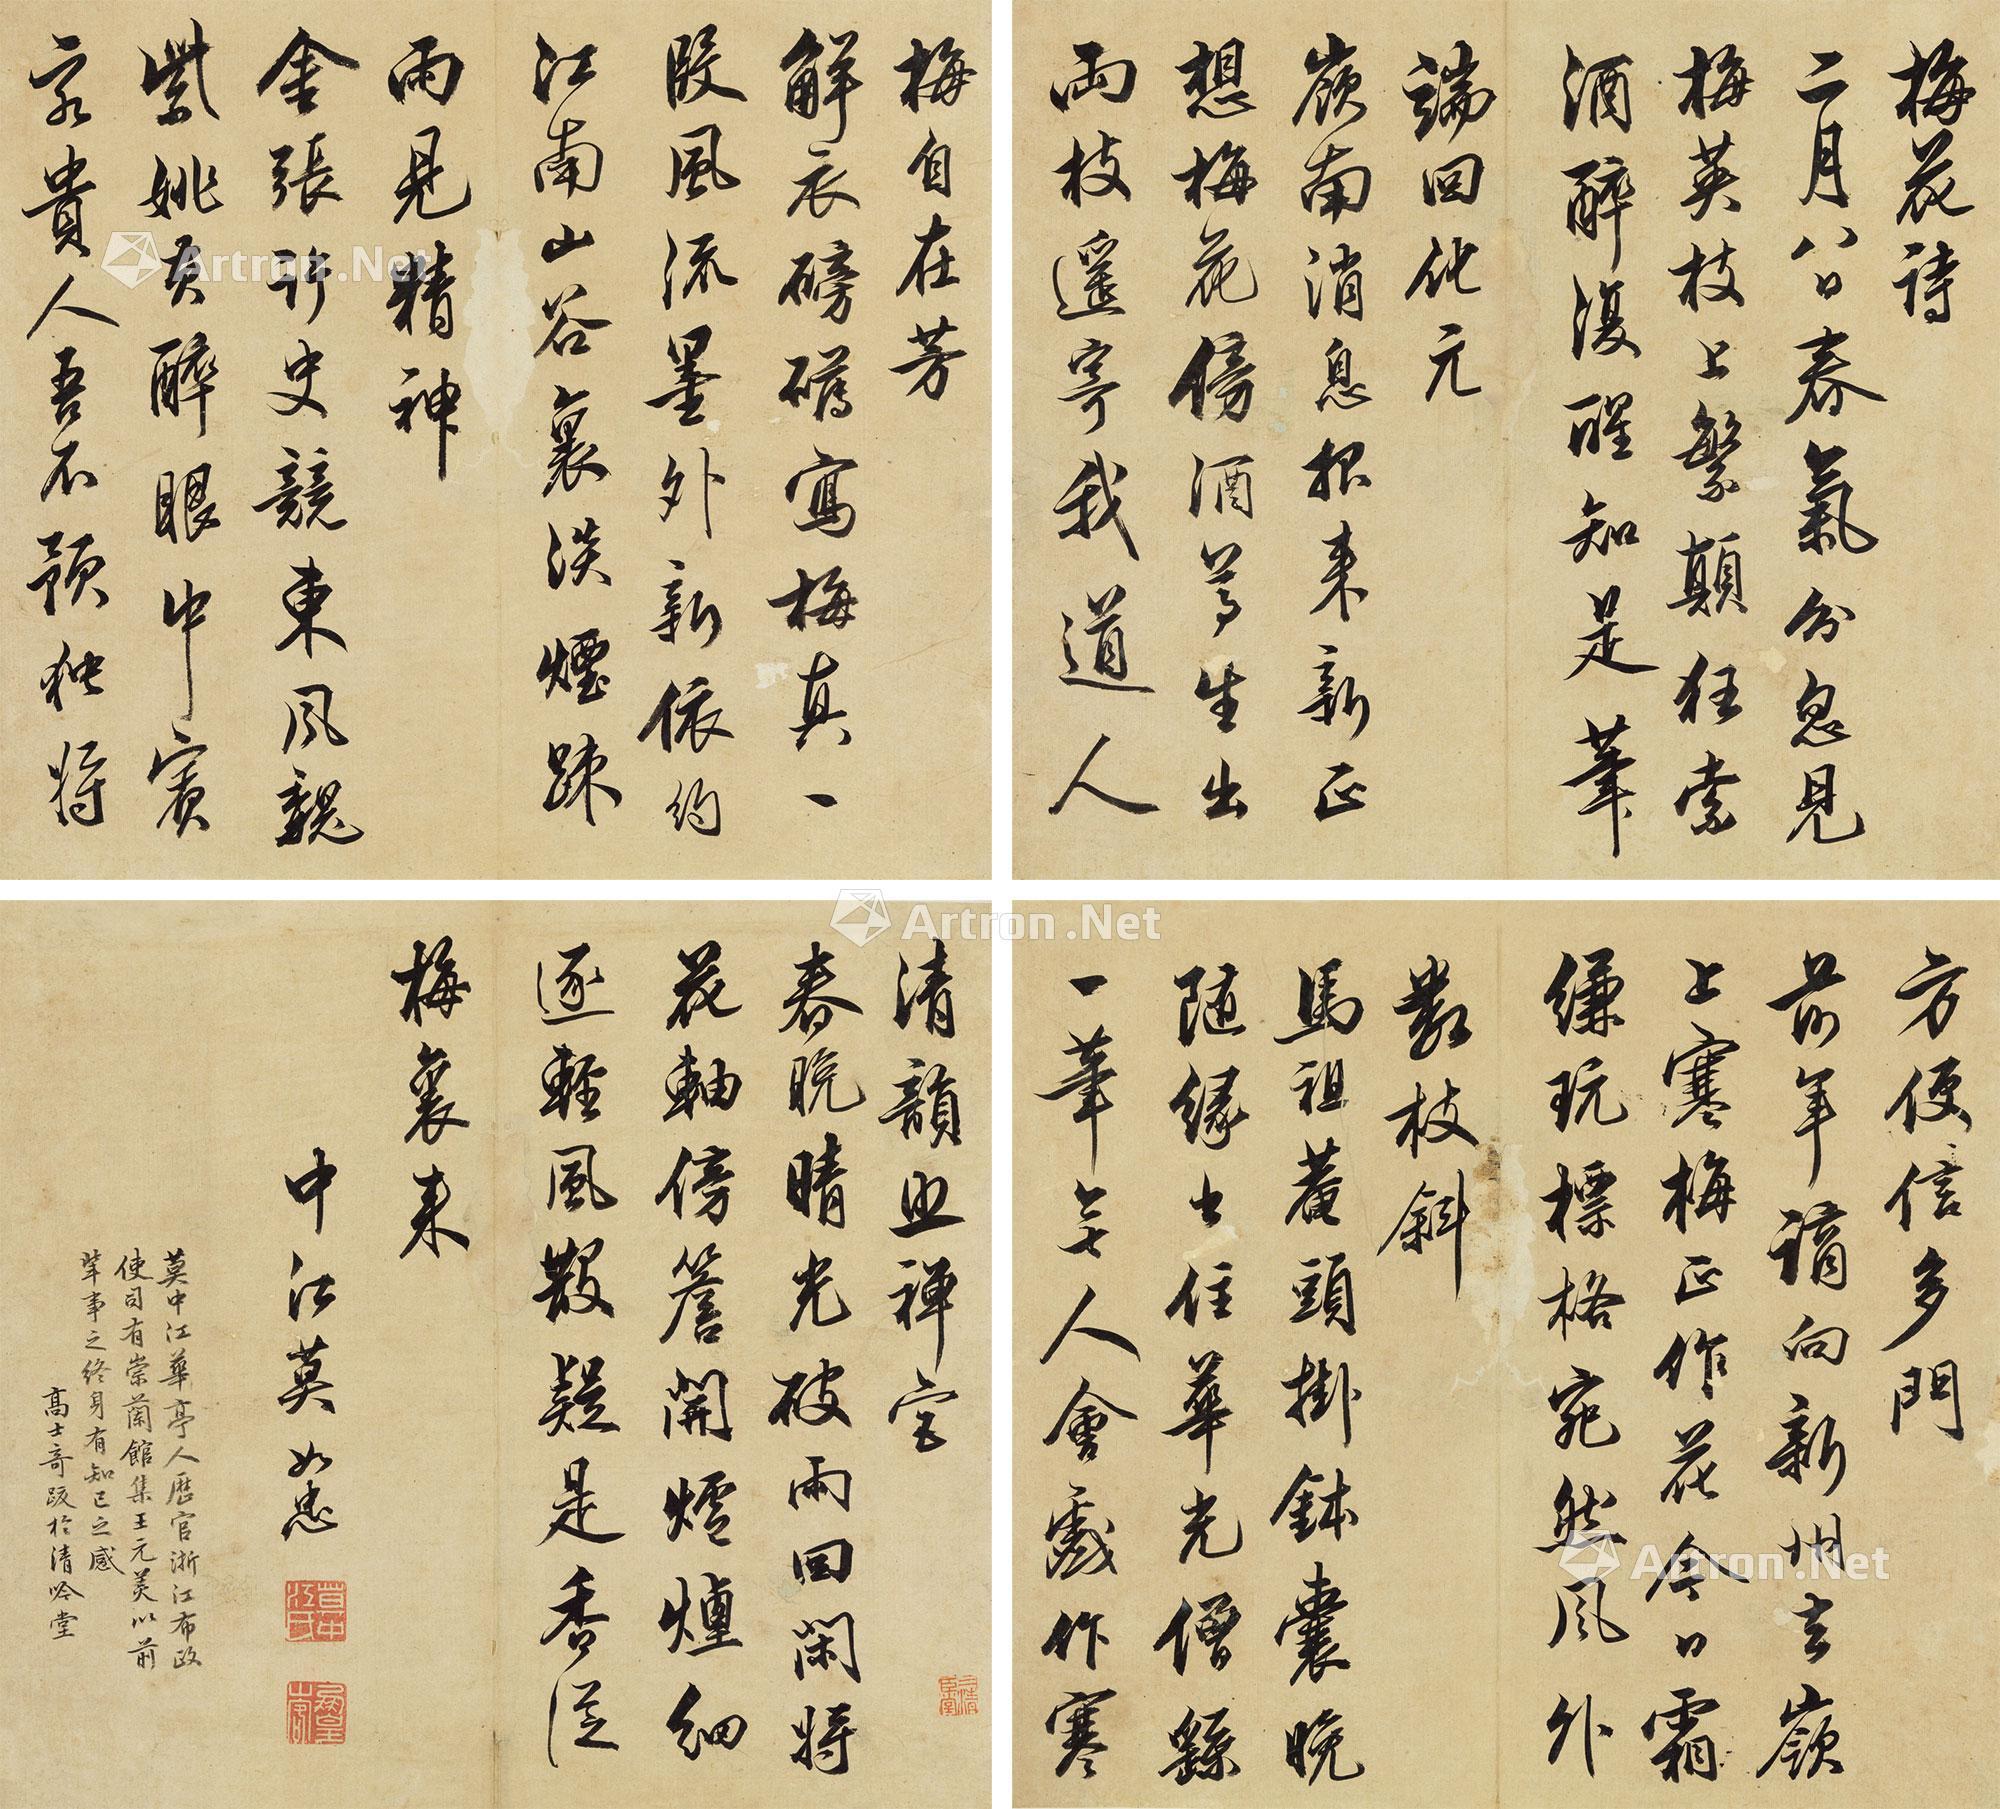 梅花诗
二月八日春气分忽见
梅英枝上繁颠狂索
酒醉复醒知是笔
端回化元
嶺南消息报来新正
想梅花傍酒尊生出
两枝遥寄我道人
方便信多門
前年謫向新州去嶺
上寒梅正作花今日霜
缣玩標格宛然风外
数枝斜
馬祖菴頭掛鉢囊晚
随缘去住華光僧繇
一筆无人會戲作寒
梅自在芳
解衣磅礴寫梅真一
段風流墨外新依约
江南山谷裏淡煙踈
雨見精神
金張許史競東风魏
紫姚黄醉眼中賓
客貴人吾不预独将
清韻出禪宫
春晚晴光破雨回閑将
花軸傍簷開爐煙細
逐輕風散疑是香從
梅裏来
中江莫如忠
莫中江華亭人歷官浙江布政
使司有崇蘭館集王元美以前
輩事之终身有知已之感
高士奇跋於清吟堂
Artron.Net
Artron.Net
Artron.Net
Artron.Net